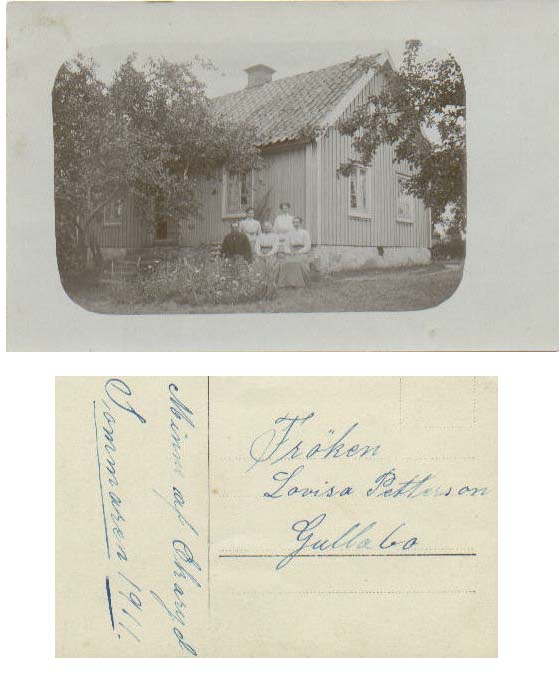 Minne af Skaryd
Sommaren 1911.
Fröken
Lovisa Petterson
Gullabo